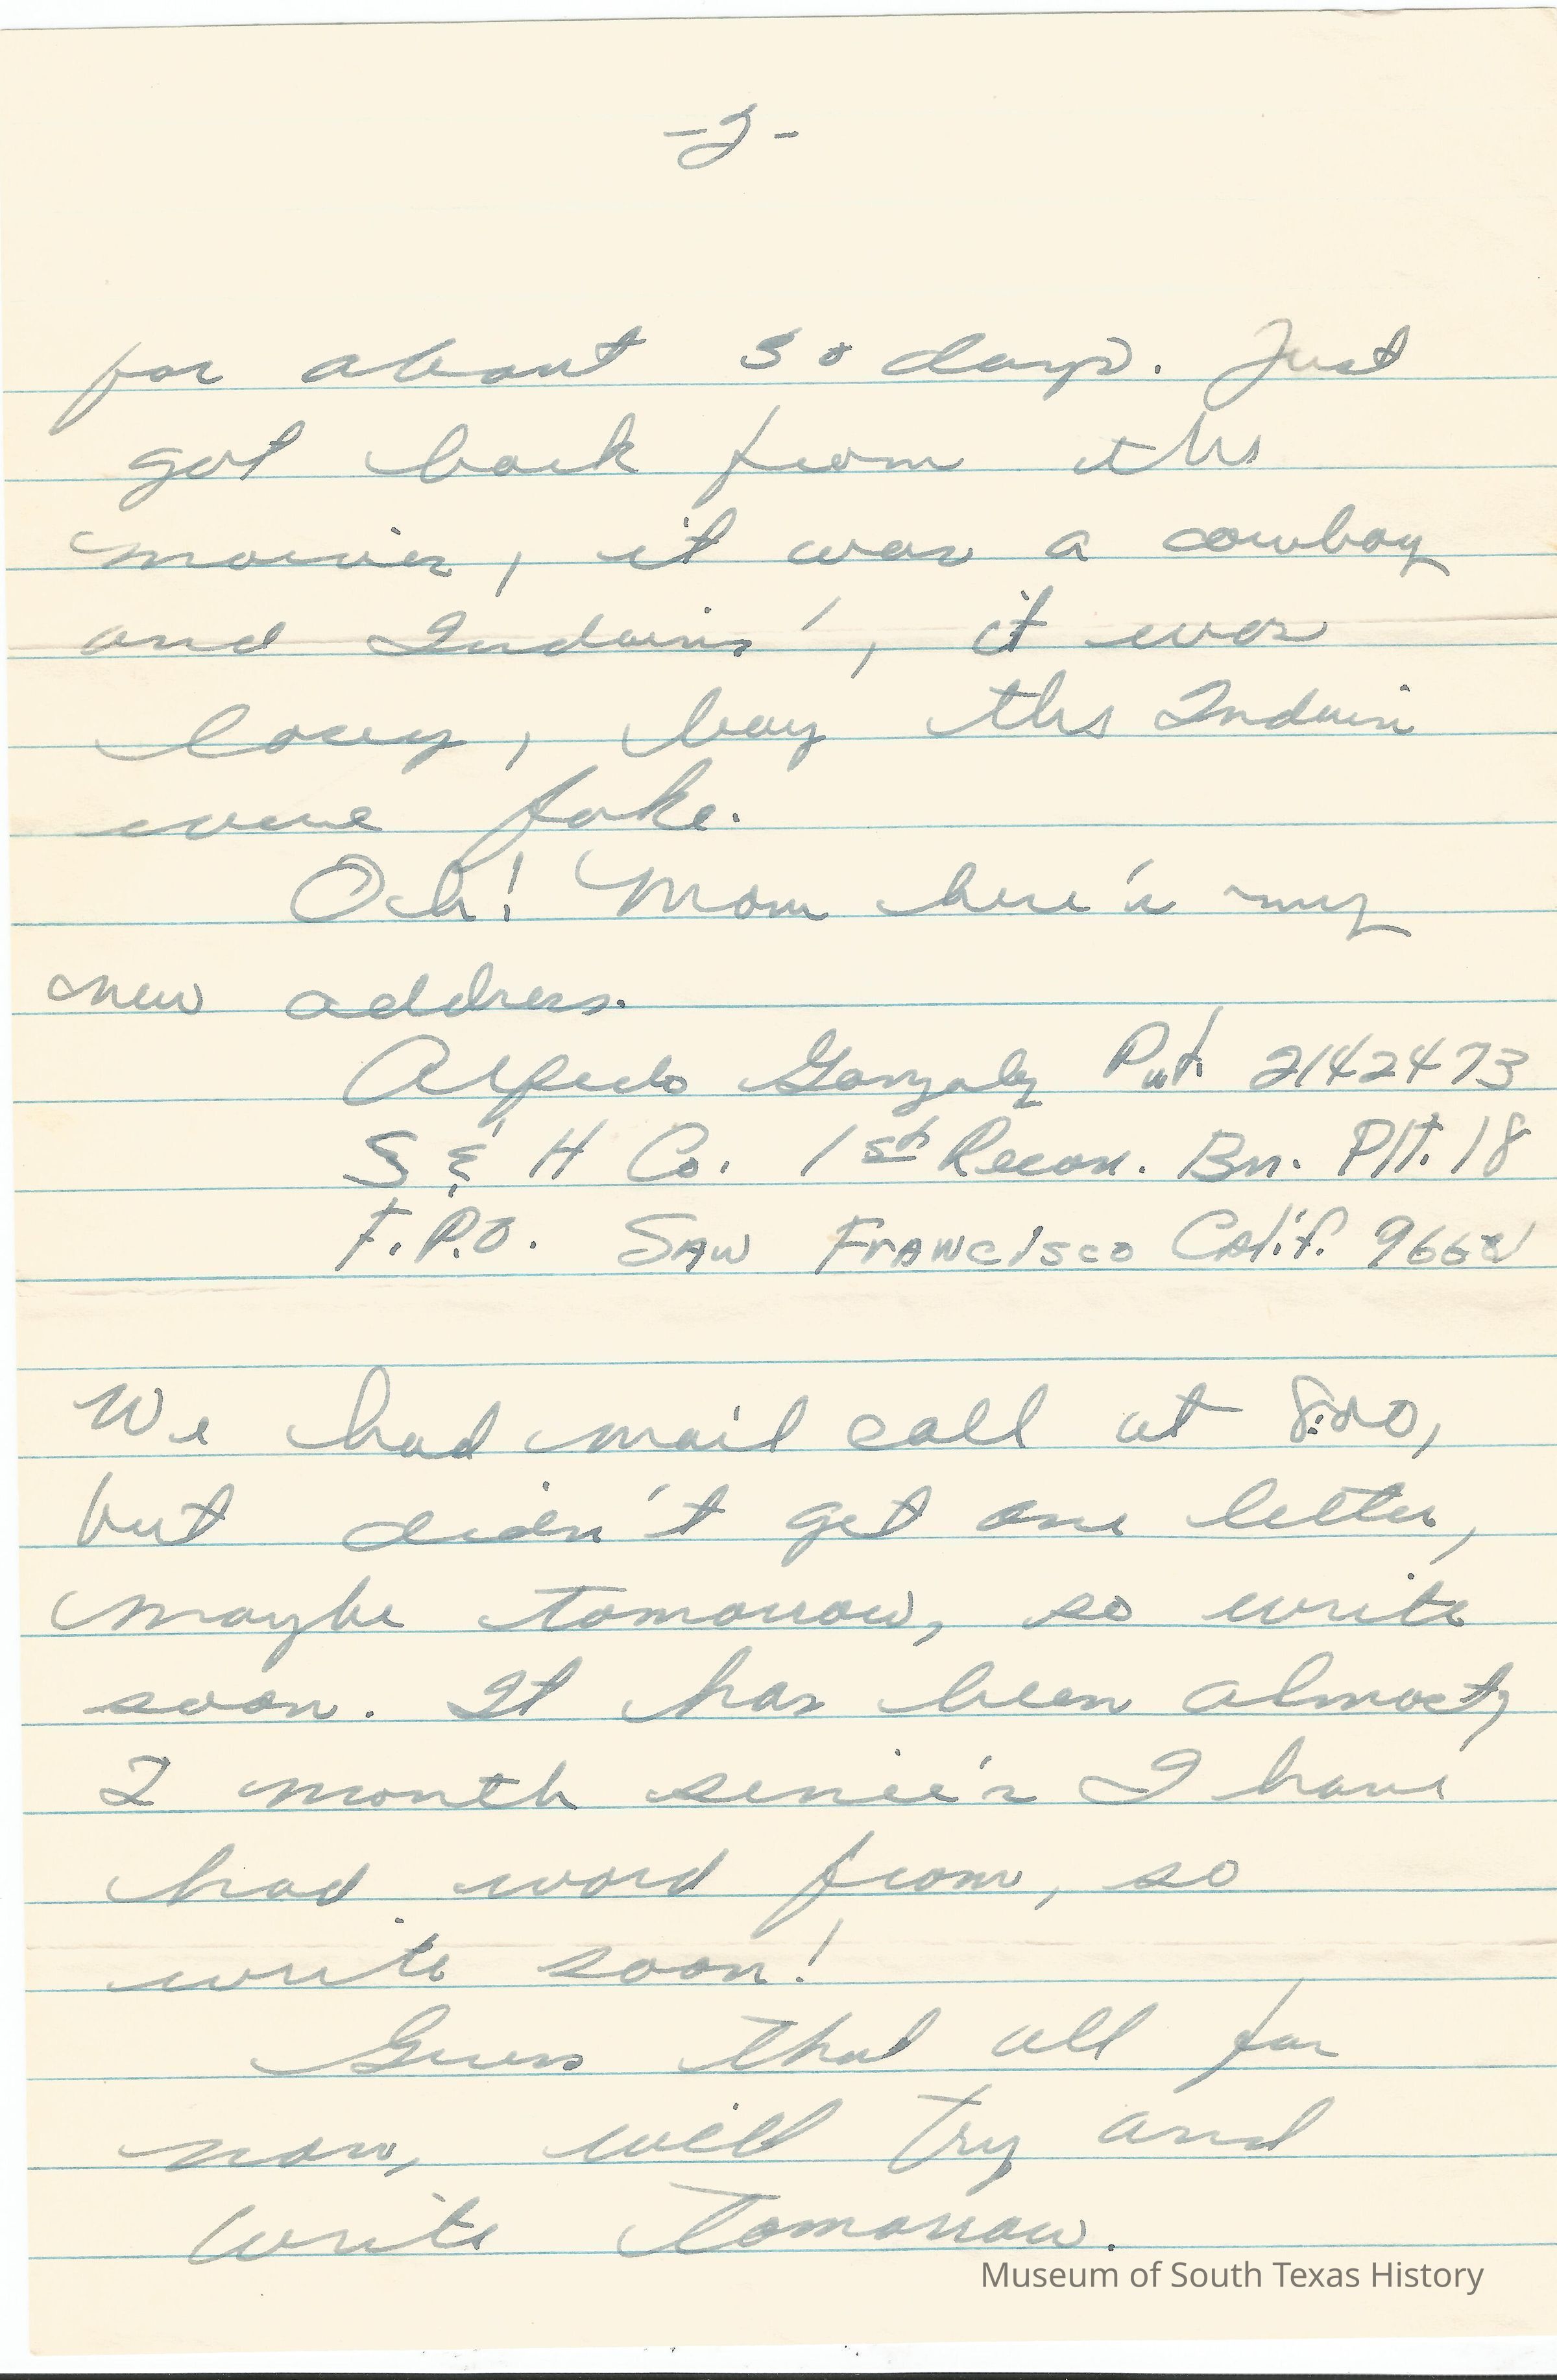 -2-
for about 30 days. Just
got back from the
movies, it was a cowboy
and Indains', it was
boy the Indain
were fake.
Och! Mom here's my
new address.
Alfredo Gonzalez Pvt. 2142473
S & H Co. 1st Recon. Bn. Plt. 18
F.P.O. SAN FRANCISCO Calif.
We had mail call at 8:00,
but didn't get one letter,
maybe tomorrow, so write
soon. It has been almost,
2 month I have
had word from, so
write soon!
Guess that all for
now, will try and
write tomorrow.
Museum of South Texas History